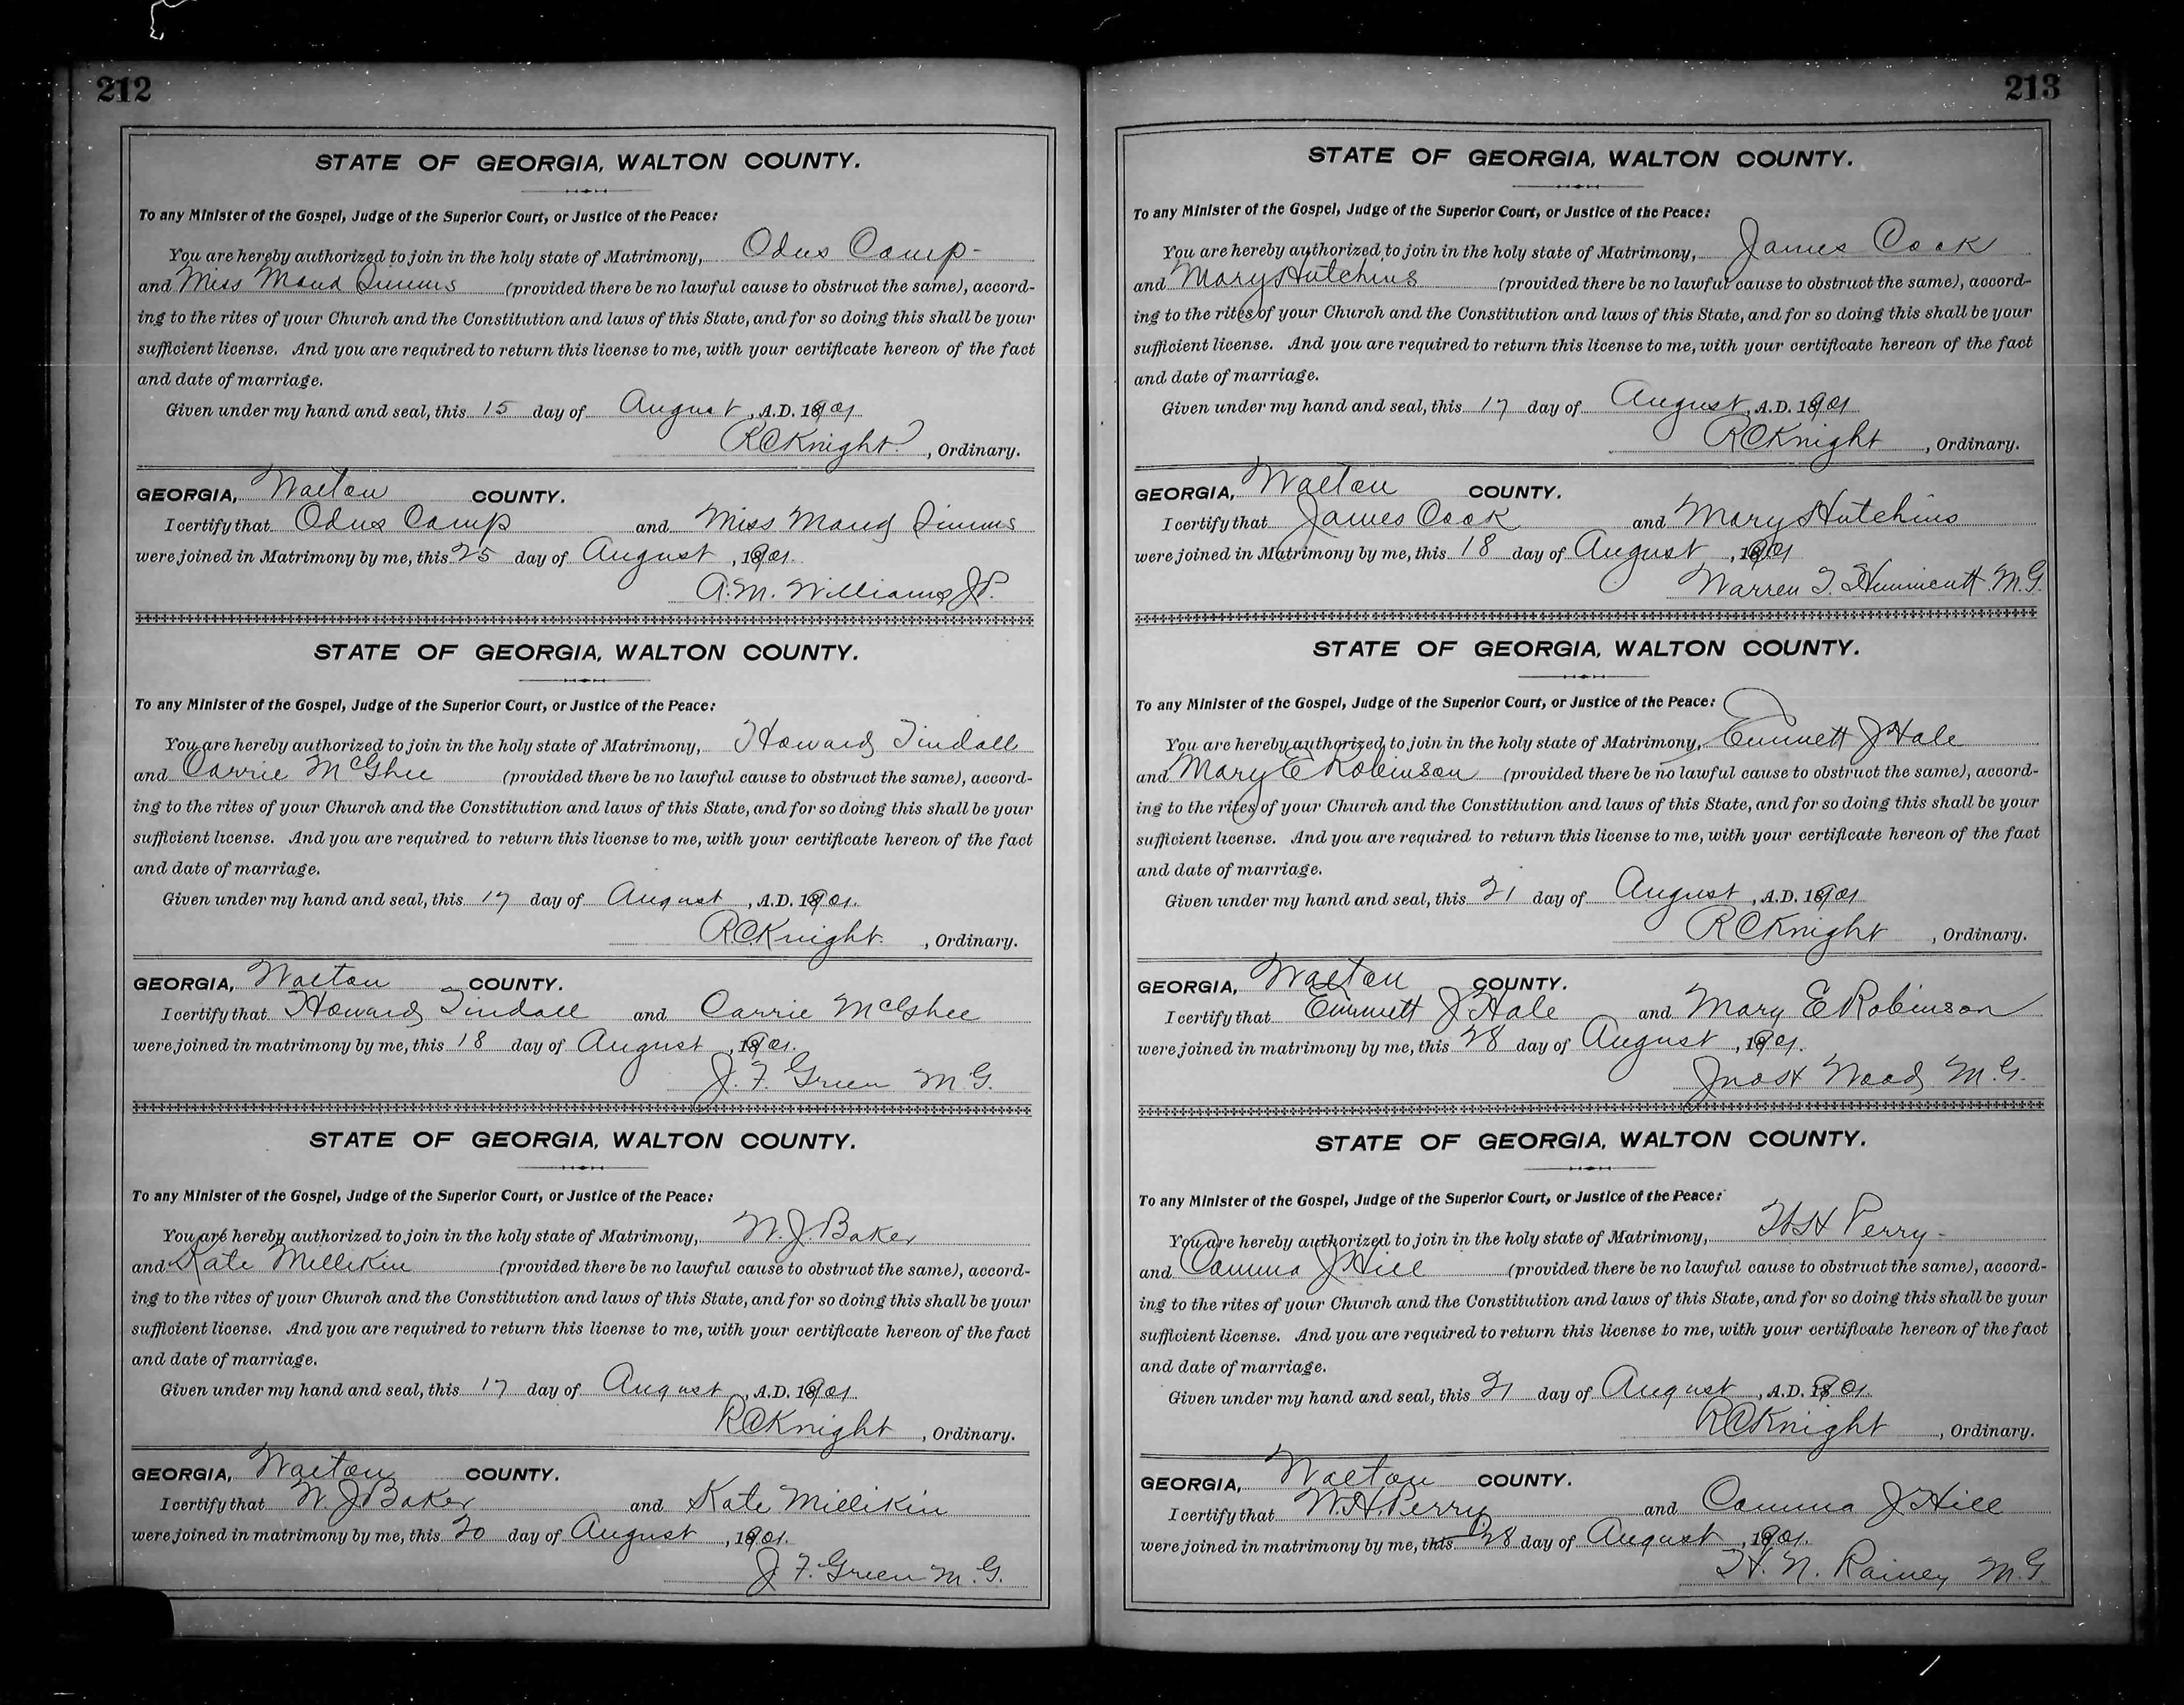 212
STATE OF GEORGIA, WALTON COUNTY.
To any Minister of the Gospel, Judge of the Superior Court, or Justice of the Peace:
You are hereby authorized to join in the holy state of Matrimony, Odus Camp-
and Miss Maud Simms (provided there be no lawful cause to obstruct the same), accord-
ing to the rites of your Church and the Constitution and laws of this State, and for so doing this shall be your
sufficient license. And you are required to return this license to me, with your certificate hereon of the fact
and date of marriage.
Given under my hand and seal, this 15 day of August, A.D. 1901
R C Knight, Ordinary.
GEORGIA, Walton COUNTY.
I certify that Odus Camp and Miss Maud Simms
were joined in Matrimony by me, this 25 day of August, 1901.
A. M. Williams J.P.
STATE OF GEORGIA, WALTON COUNTY.
To any Minister of the Gospel, Judge of the Superior Court, or Justice of the Peace:
You are hereby authorized to join in the holy state of Matrimony, Howard Tindall
and Carrie McGhee (provided there be no lawful cause to obstruct the same), accord-
ing to the rites of your Church and the Constitution and laws of this State, and for so doing this shall be your
sufficient license. And you are required to return this license to me, with your certificate hereon of the fact
and date of marriage.
Given under my hand and seal, this 17 day of August, A.D. 1901.
R.C. Knight, Ordinary.
GEORGIA, Walton COUNTY.
I certify that Howard Tindall and Carrie McGhee
were joined in matrimony by me, this 18 day of August, 1901.
J. F. Green M G.
STATE OF GEORGIA, WALTON COUNTY.
To any Minister of the Gospel, Judge of the Superior Court, or Justice of the Peace:
You are hereby authorized to join in the holy state of Matrimony, W. J. Baker
and Kate Millikin (provided there be no lawful cause to obstruct the same), accord-
ing to the rites of your Church and the Constitution and laws of this State, and for so doing this shall be your
sufficient license. And you are required to return this license to me, with your certificate hereon of the fact
and date of marriage.
Given under my hand and seal, this 17 day of August, A.D. 1901.
R C Knight, Ordinary.
GEORGIA, Walton COUNTY.
I certify that W. J Baker and Kate Millikin
were joined in matrimony by me, this 20 day of August, 1901.
J F. Green M. G.
213
STATE OF GEORGIA, WALTON COUNTY.
To any Minister of the Gospel, Judge of the Superior Court, or Justice of the Peace:
You are hereby authorized to join in the holy state of Matrimony, James Cook
and Mary Hutchins (provided there be no lawful cause to obstruct the same), accord-
ing to the rites of your Church and the Constitution and laws of this State, and for so doing this shall be your
sufficient license. And you are required to return this license to me, with your certificate hereon of the fact
and date of marriage.
Given under my hand and seal, this 17 day of August, A.D. 1901
R C Knight, Ordinary.
GEORGIA, Walton COUNTY.
I certify that James Cook and Mary Hutchins
were joined in Matrimony by me, this 18 day of August, 1901
Warren T. Hunnicutt M.G.
STATE OF GEORGIA, WALTON COUNTY.
To any Minister of the Gospel, Judge of the Superior Court, or Justice of the Peace:
You are hereby authorized to join in the holy state of Matrimony, Emmett J Hale
and Mary E Robinson (provided there be no lawful cause to obstruct the same), accord-
ing to the rites of your Church and the Constitution and laws of this State, and for so doing this shall be your
sufficient license. And you are required to return this license to me, with your certificate hereon of the fact
and date of marriage.
Given under my hand and seal, this 21 day of August, A.D. 1901
R C Knight, Ordinary.
GEORGIA, Walton COUNTY.
I certify that Emmett J Hale and Mary E Robinson
were joined in matrimony by me, this 28 day of August, 1901.
Jno H Wood M. G.
STATE OF GEORGIA, WALTON COUNTY.
To any Minister of the Gospel, Judge of the Superior Court, or Justice of the Peace:
You are hereby authorized to join in the holy state of Matrimony, W H Perry-
and Comma J Hill (provided there be no lawful cause to obstruct the same), accord-
ing to the rites of your Church and the Constitution and laws of this State, and for so doing this shall be your
sufficient license. And you are required to return this license to me, with your certificate hereon of the fact
and date of marriage.
Given under my hand and seal, this 21 day of August, A.D. 1901.
R C Knight, Ordinary.
GEORGIA, Walton COUNTY.
I certify that W. H. Perry and Comma J Hill
were joined in matrimony by me, this 28 day of August, 1901.
H. N. Rainey M. G